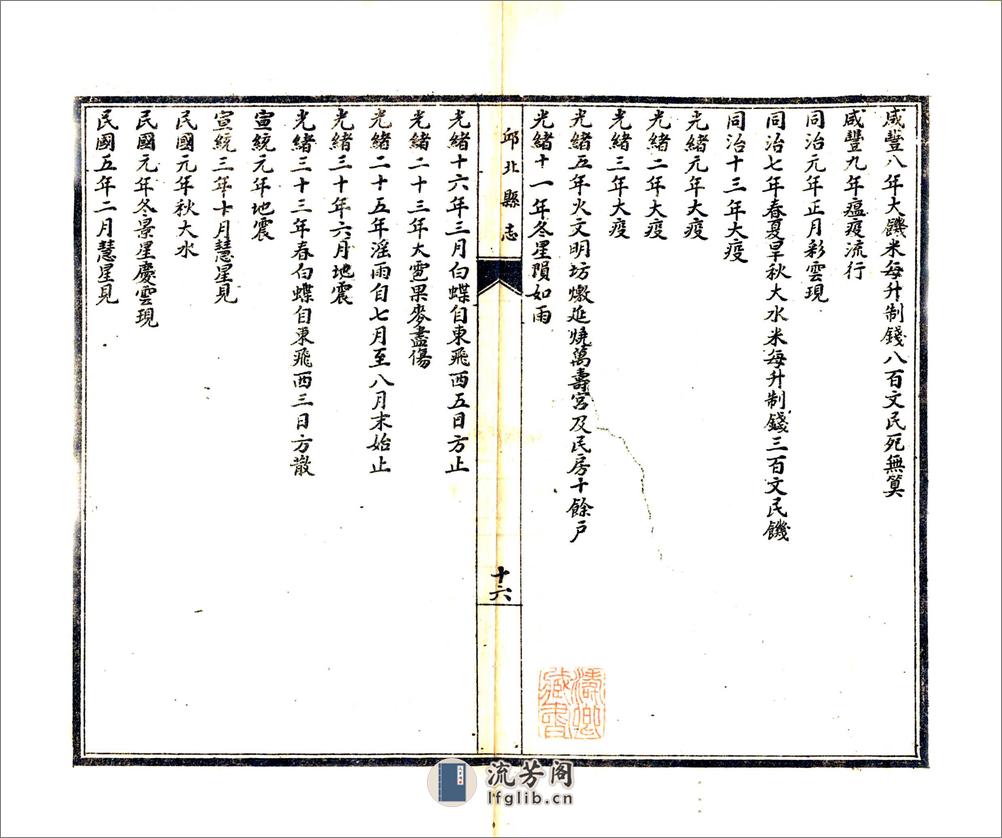 咸豐八年大饑米每升制錢八百文民死無算
咸豐九年瘟疫流行
同治元年正月彩雲現
同治七年春夏旱秋大水米每升制錢三百文民饑
同治十三年大疫
光緒元年大疫
光緒二年大疫
光緒三年大疫
光緒五年火文明坊燉延燒萬壽宮及民房十餘戶
光緒十一年冬星隕如雨
邱北縣志
十六
光緒十六年三月白蝶自東飛西五日方止
光緒二十三年大雹果麥盡傷
光緒二十五年滛雨自七月至八月末始止
光緒三十年六月地震
光緒三十三年春白蝶自東飛西三日方散
宣統元年地震
宣統三年十月慧星見
民國元年秋大水
民國元年冬景星慶雲現
民國五年二月慧星見
流芳阁
lfglib.cn